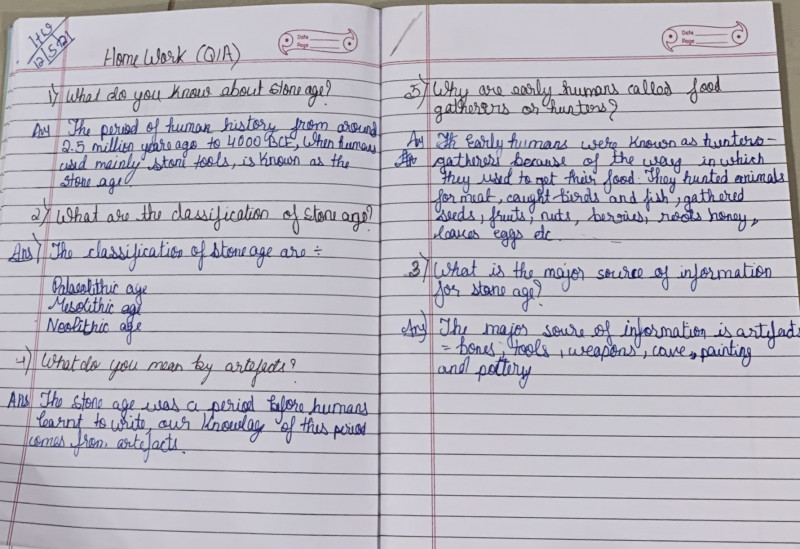 HW
12/5/21
Home Work (Q/A)
Date
Page
1) What do you know about stone age?
Ans The period of human history from around
2.5 million years ago to 4000 BCE, when humans
used mainly stone tools, is known as the
stone age
2) What are the classification of stone age?
Ans) The classification of stone age are ÷
Palaeolithic age
Mesolithic age
Neolithic age
4) What do you mean by artefacts?
Ans The stone age was a period before humans
learnt to write, our knowlag of this period
comes fron. artefacts.
Date
Page
5) Why are early humans called food
gatherers or hunters?
Ans Early humans were known as hunters-
gatherers because of the way in which
they used to get their food. They hunted animals
for meat, caught birds and fish, gathered
seeds, fruits, nuts, berries, roots honey,
leaves eggs etc.
3) What is the major source of information
for stone age?
Ans) The major soure of information is artifacts
= bones, tools, weapons, cave, painting
and pottery